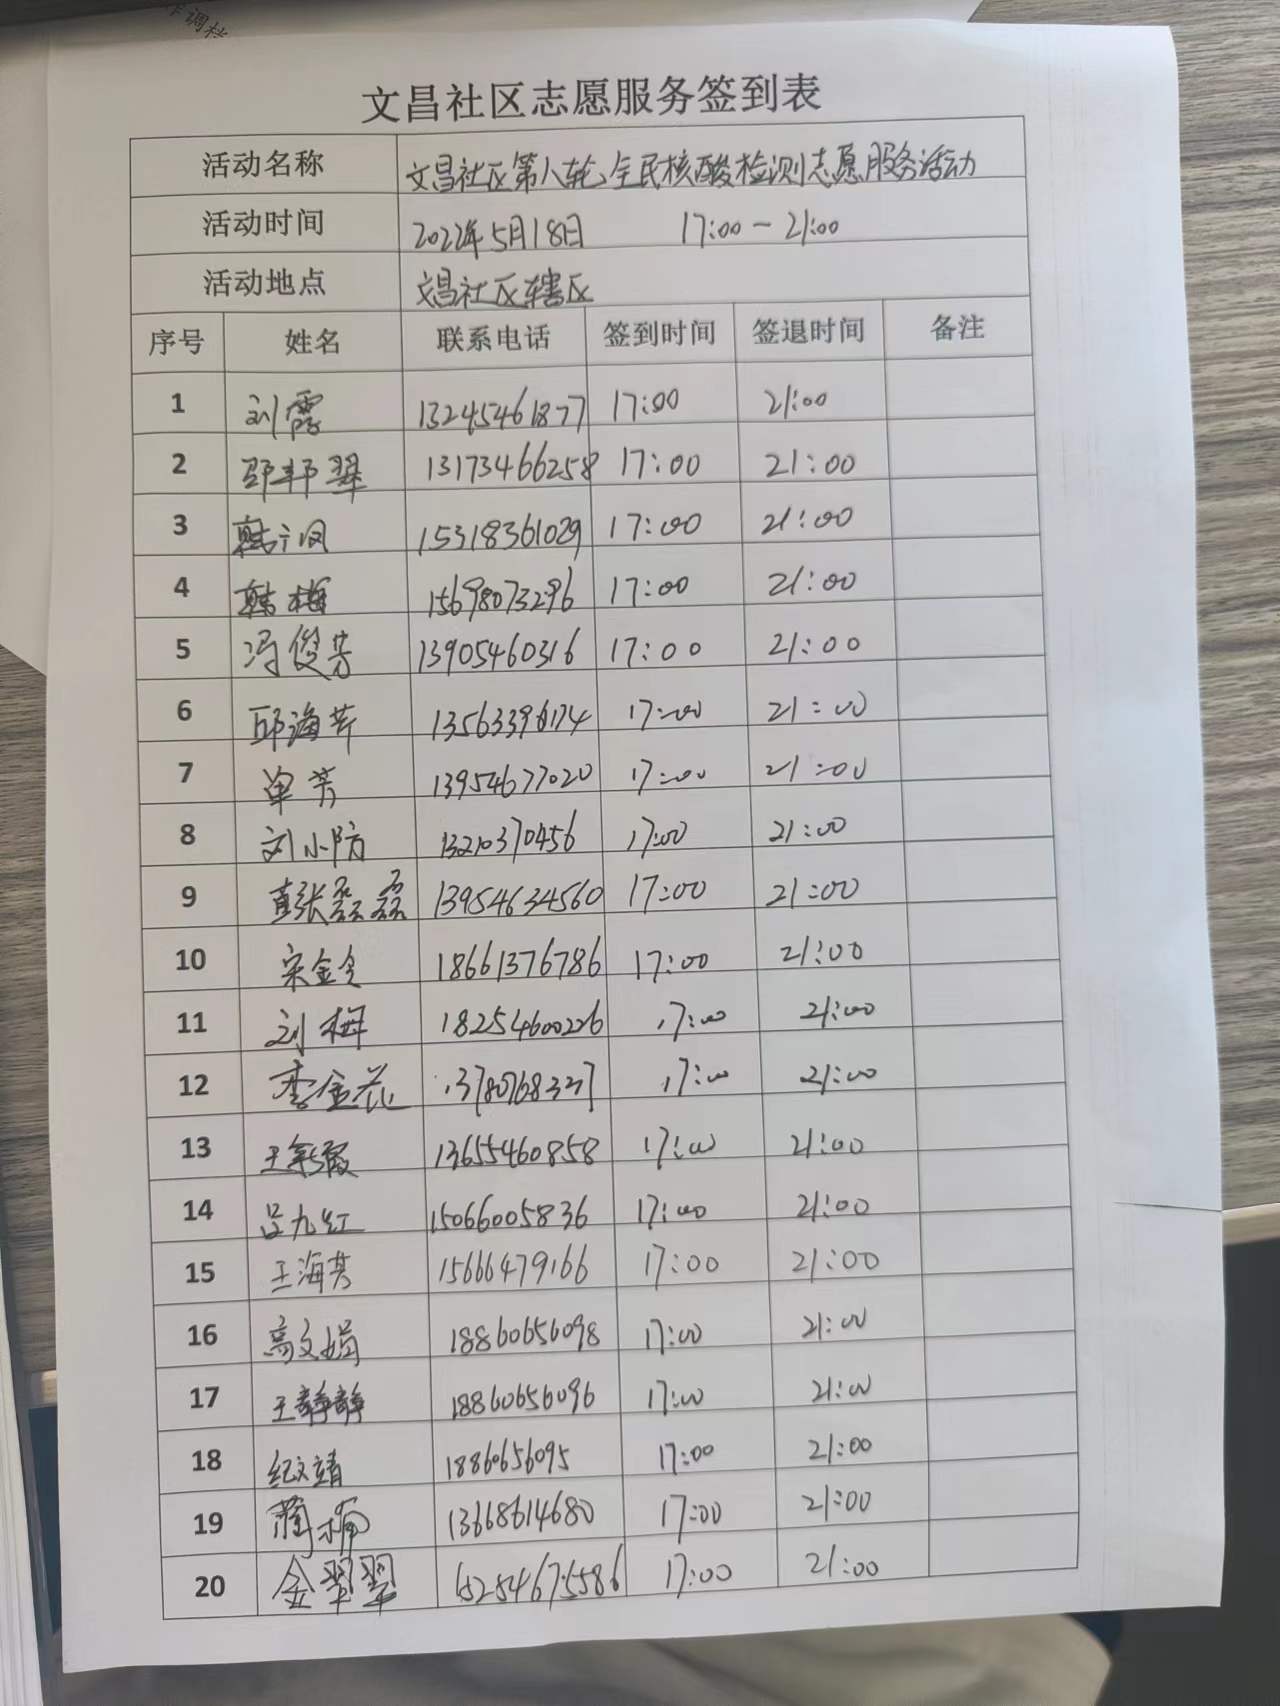 文昌社区志愿服务签到表
活动名称 文昌社区第八轮全民核酸检测志愿服务活动
活动时间 2022年5月18日 17:00-21:00
活动地点 文昌社区辖区
序号 姓名 联系电话 签到时间 签退时间 备注
1 刘霞 13245461877 17:00 21:00
2 邵邦翠 13173466258 17:00 21:00
3 韩 15318361029 17:00 21:00
4 韩梅 15698073296 17:00 21:00
5 冯俊芳 13905460316 17:00 21:00
6 邱海芹 17:00 21:00
7 单芳 13954677020 17:00 21:00
8 刘小防 13210370456 17:00 21:00
9 张磊磊 13954634560 17:00 21:00
10 宋金令 18661376786 17:00 21:00
11 刘梅 18254600226 17:00 21:00
12 李金花 17:00 21:00
13 王新霞 13655460858 17:00 21:00
14 吕九红 15066005836 17:00 21:00
15 王海芳 15666479166 17:00 21:00
16 高文娟 18860656098 17:00 21:00
17 王静静 18860656096 17:00 21:00
18 纪文靖 18860656095 17:00 21:00
19 蔺楠 13668614680 17:00 21:00
20 金翠翠 15254675586 17:00 21:00